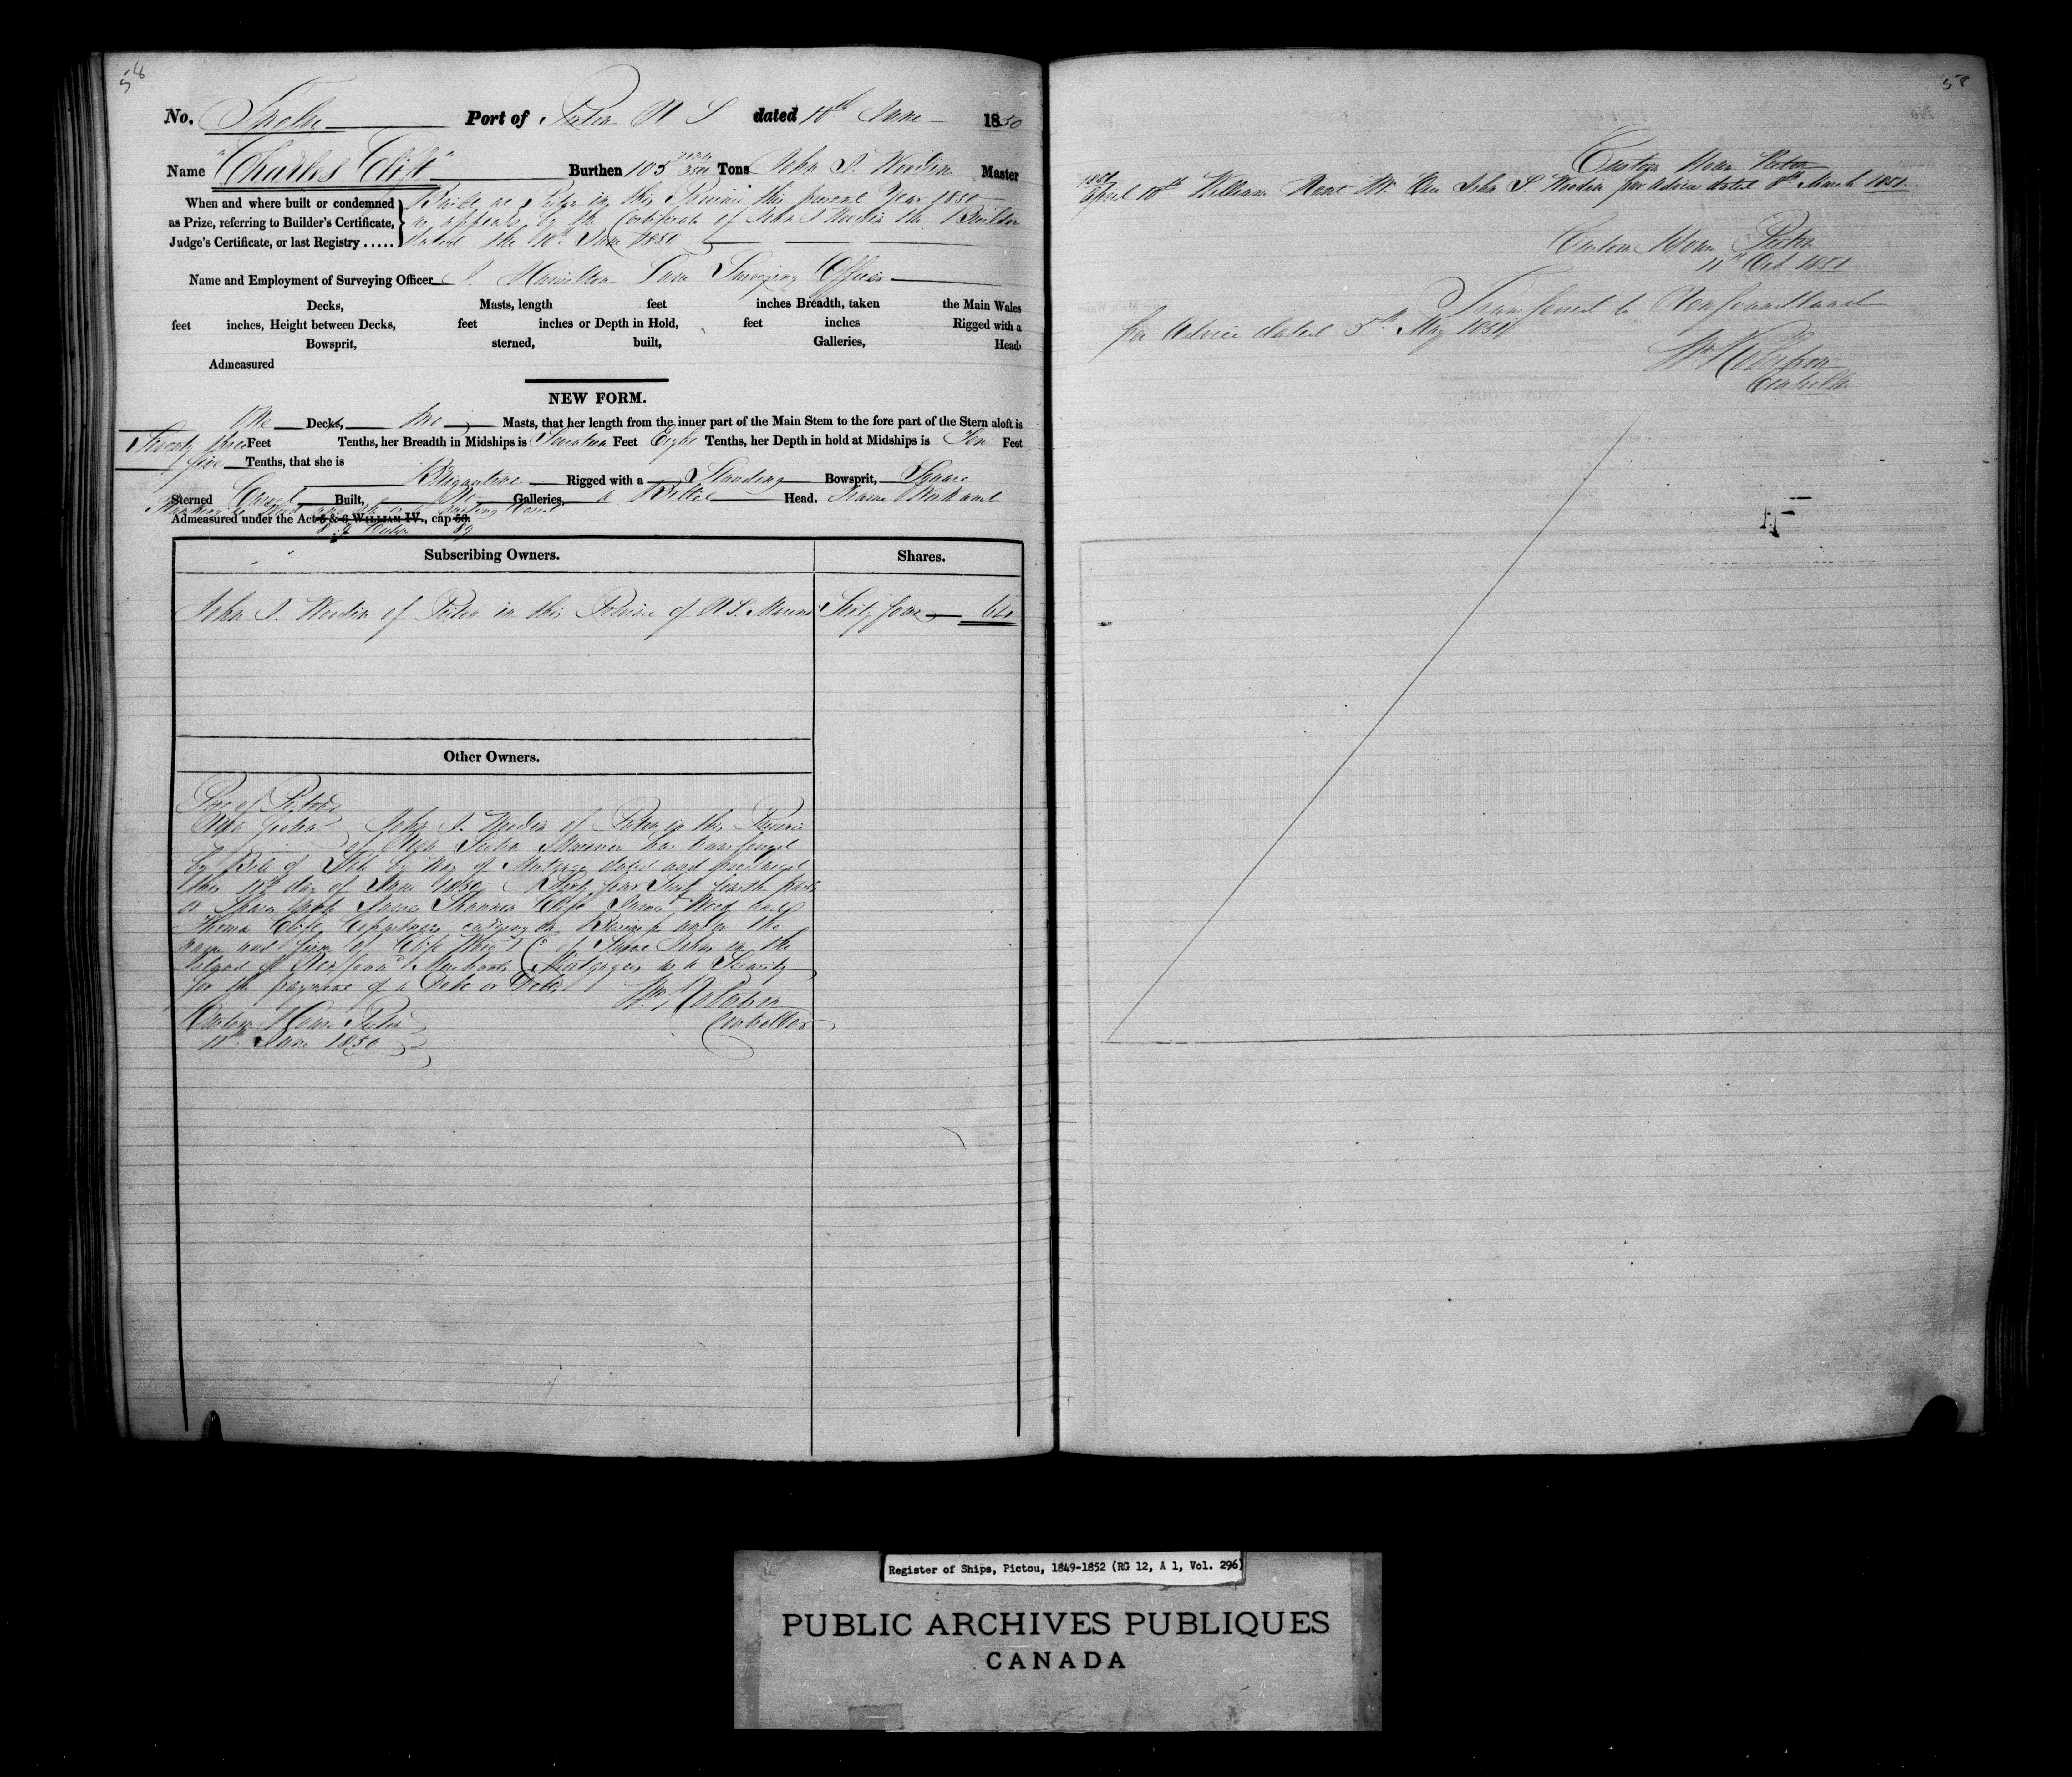 58
No. Twelve Port of Pictou N S dated 10th June 1850
Name "Charles Clift" Burthen 105 Tons John S. Master
When and where built or condemned
as Prize, referring to Builder's Certificate,
Judge's Certificate, or last Registry .....
Built at Pictou in this Province this present Year 1850
as appears by the Certificate of John S the Builder
dated the 10th June 1850
Name and Employment of Surveying Officer Hamilton Surveying Officer
Decks, Masts, length feet inches Breadth, taken the Main Wales
feet inches, Height between Decks, feet inches or Depth in Hold, feet inches Rigged with a
Bowsprit, sterned, built, Galleries, Head,
Admeasured
NEW FORM.
One Decks, two Masts, that her length from the inner part of the Main Stem to the fore part of the Stern aloft is
Seventy three Feet Tenths, her Breadth in Midships is Seventeen Feet Eight Tenths, her Depth in hold at Midships is Ten Feet
five Tenths, that she is
Brigantine Rigged with a Standing Bowsprit, Square
Sterned Carvel Built, No Galleries, a Billet Head. Frame
Admeasured under the Act 5 & 6 WILLIAM IV., cap 56.
8 & 9 Victoria 89
Subscribing Owners. Shares.
John S. of Pictou in this Province of N S. Sixty four 64
Other Owners.
Port of Pictou
Nova Scotia John S. of Pictou in this Province
of Nova Scotia Mariner has transferred
by Bill of Sale by way of Mortgage dated and
this 11th day of June 1850 Sixty four Sixty fourth parts
or Shares James Shannon Clift James Wood and
Thomas Clift carrying on Business under the
name and firm of Clift Wood & Co of Saint Johns in the
Island of Newfound Merchants Mortgagees as a Security
for the payment of a Debt or Debts
Wm Robertson
Controller
Custom House Pictou
11th June 1850
58
Custom House Pictou
1851
April 10th William Kent John S per Advice dated 8th March 1851.
Custom House Pictou
11th Oct 1851
Transferred to Newfoundland
per Advice dated 5th May 1851
Wm Robertson
Controller
Register of Ships, Pictou, 1849-1852 (RG 12, A 1, Vol. 296)
PUBLIC ARCHIVES PUBLIQUES
CANADA